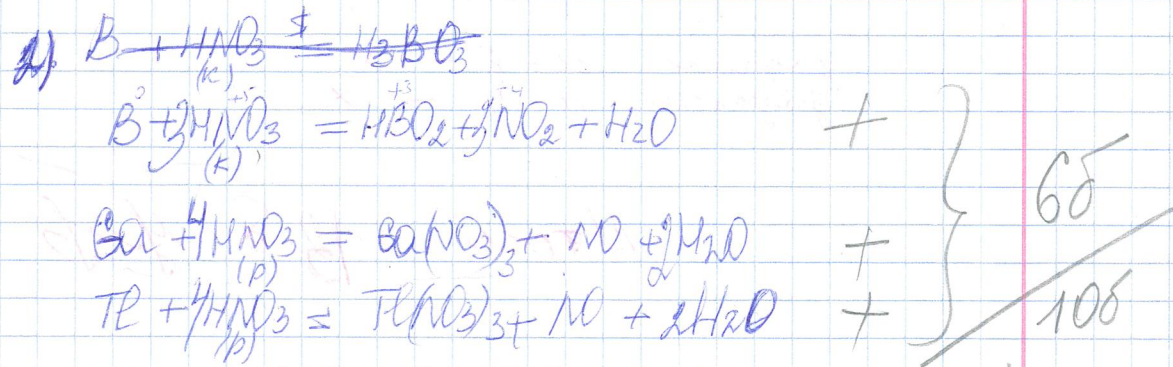 2) B + HNO3 (к) = H3BO3
B + 3HNO3 (к) = HBO2 + 3NO2 + H2O +
Ga + 4HNO3 (р) = Ga(NO3)3 + NO + 2H2O + 6б
Tl + 4HNO3 (р) = Tl(NO3)3 + NO + 2H2O + 10б